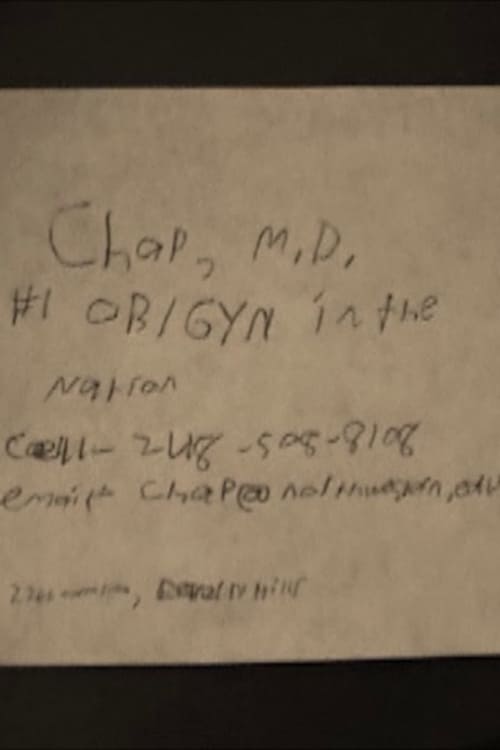 Chap, M.D.,
#1 OB/GYN in the
Nation
Cell- 248-508-8108
email- Chap@northwestern.edu
Hills